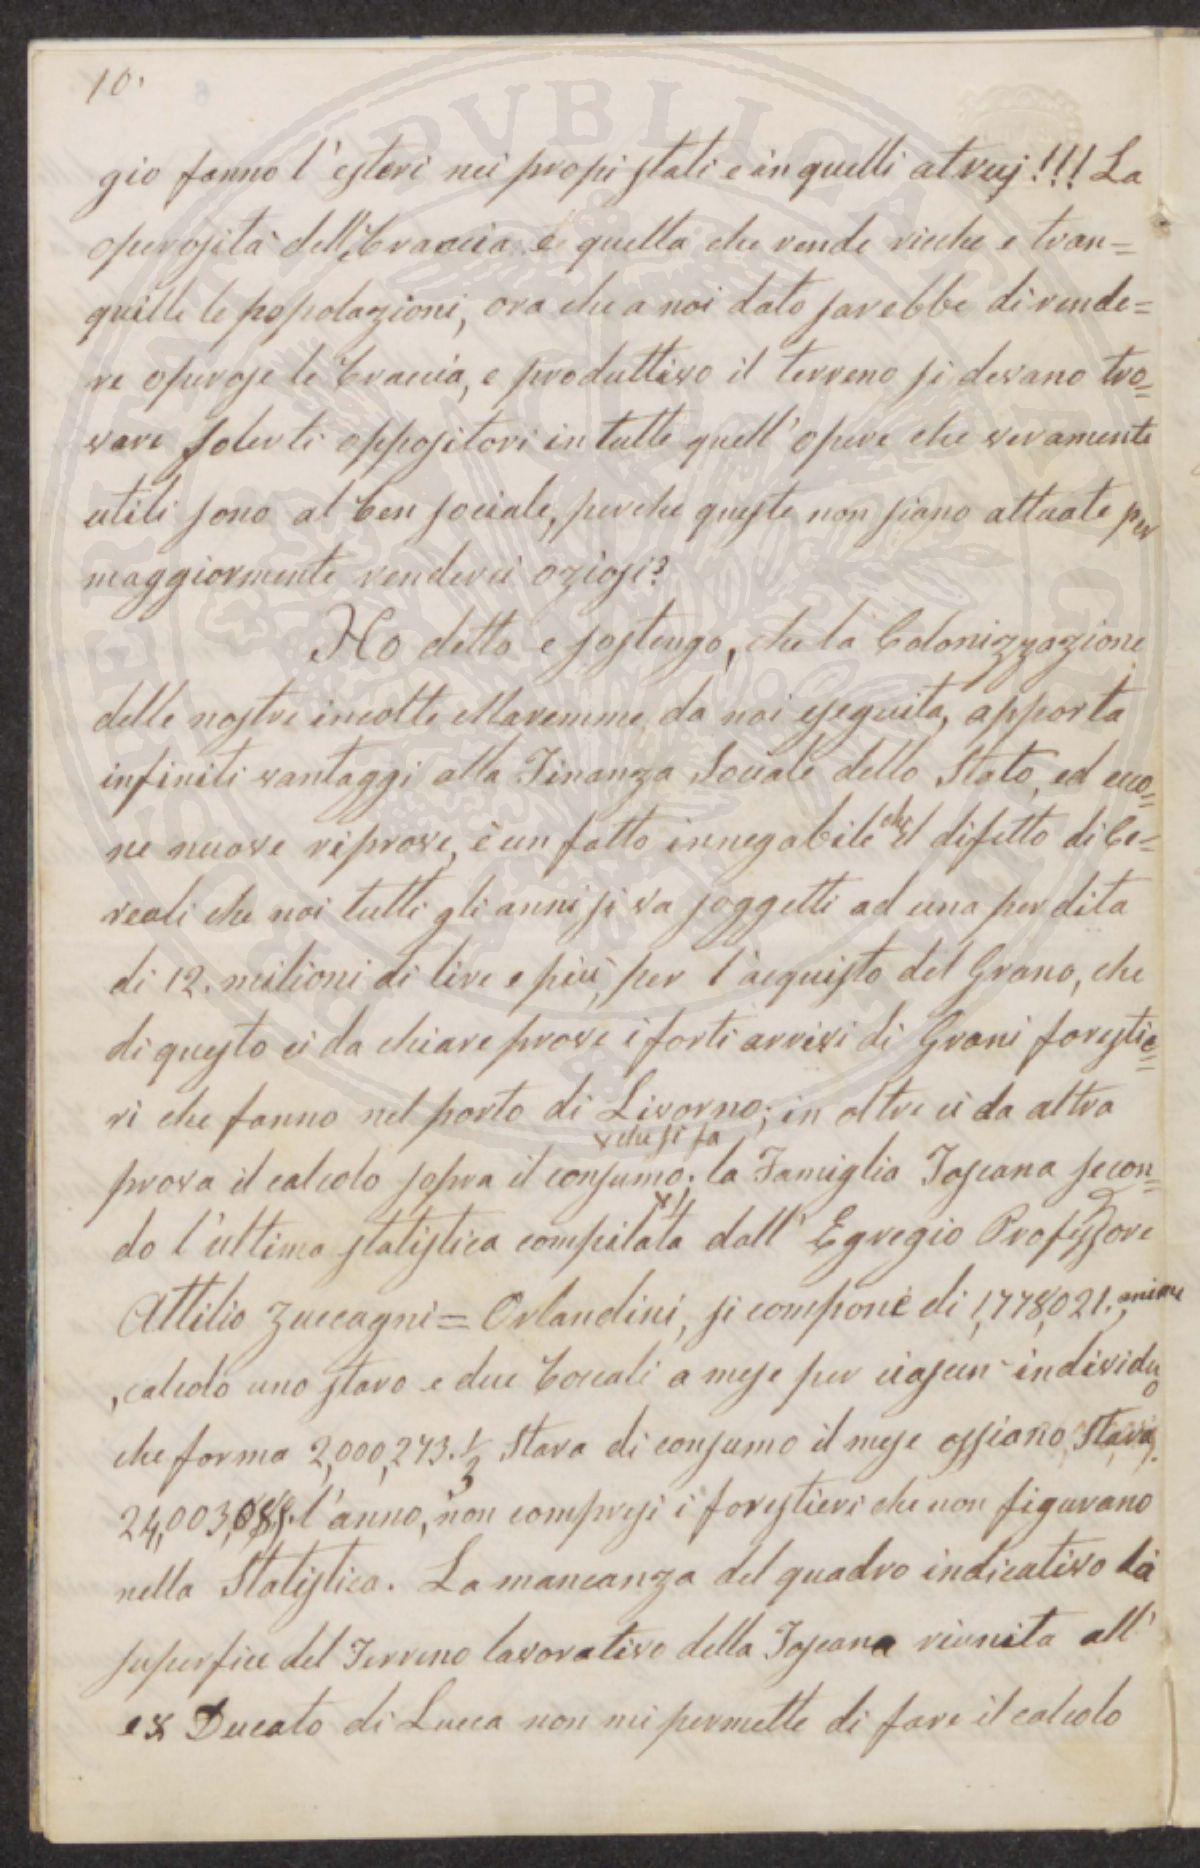 10.
gio fanno l'esteri nei propi stati e in quelli atruj!!! La
operosità dell Braccia è quella che rende ricche e tran=
quille le popolazioni, ora che a noi dato sarebbe di rende=
re operose le braccia, e produttivo il terreno si devano tro=
vare solerti oppositori in tutte quell'opere che veramente
utili sono al ben sociale, perche queste non siano attuate per
maggiormente renderci oziosi?
Ho detto e sostengo, che la Colonizzazione
delle nostre incolte Maremme, da noi eseguita, apporta
infiniti vantaggi alla Finanza Sociale dello Stato, ed ecco=
ne nuove riprove, è un fatto innegabile che il difetto di Ce=
reali che noi tutti gli anni si va soggetti ad una perdita
di 12. milioni di lire e più, per l'acquisto del Grano, che
di questo ci da chiare prove i forti arrivi di Grani forestie=
ri che fanno nel porto di Livorno; in oltre ci da altra
x che si fa
prova il calcolo sopra il consumo; la Famiglia Toscana secon=
do l'ultima statistica compilata dall' Egregio Professore
Attilio Zuccagni=Orlandini, si compone di 1,778,021. anime
, calcolo uno staro e due Boccali a mese per ciascun individuo
che forma 2,000,273. 1/2 Stara di consumo il mese ossiano, Stara,
24,003,088. l'anno, non compresi i forestieri che non figurano
nella Statistica. La mancanza del quadro indicativo la
superfice del Terreno lavorativo della Toscana riunita all'
ex Ducato di Lucca non mi permette di fare il calcolo
PVBLICA